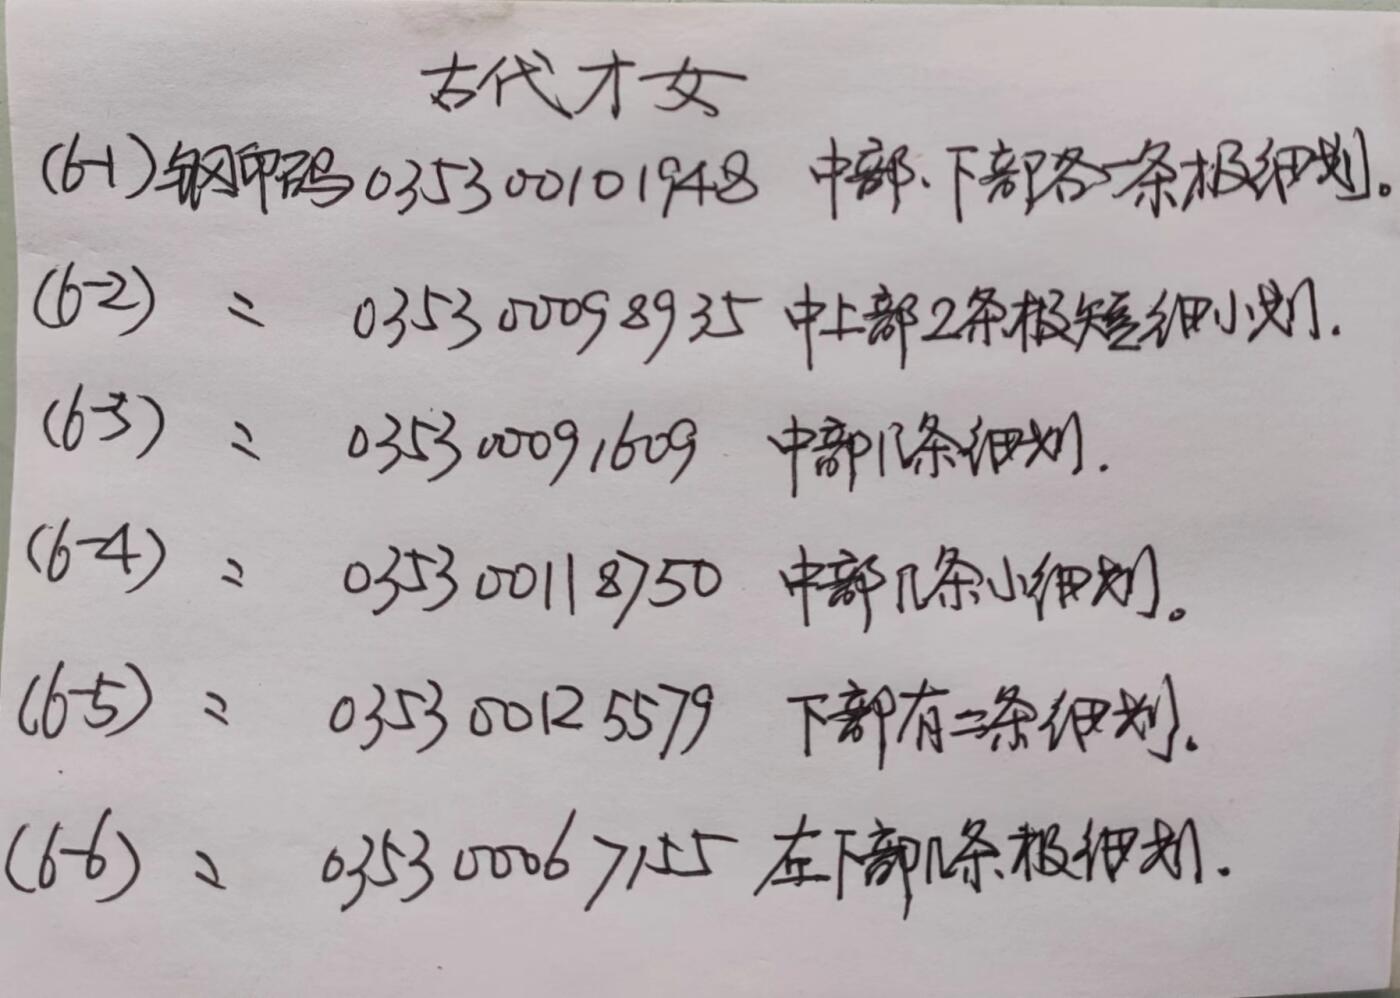 古代才女
(6-1)钢印码 035300101948 中部、下部各一条极细划。
(6-2) 〃 035300098935 中上部2条极短细小划.
(6-3) 〃 035300091609 中部几条细划.
(6-4) 〃 035300118750 中部几条小细划。
(6-5) 〃 035300125579 下部有二条细划.
(6-6) 〃 035300067155 左下部几条极细划.